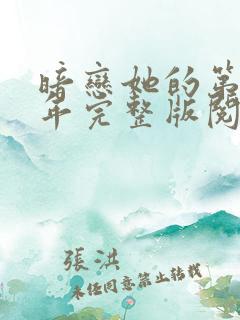 暗戀她的第
年完整版閱
張洪
未經同意禁止轉載